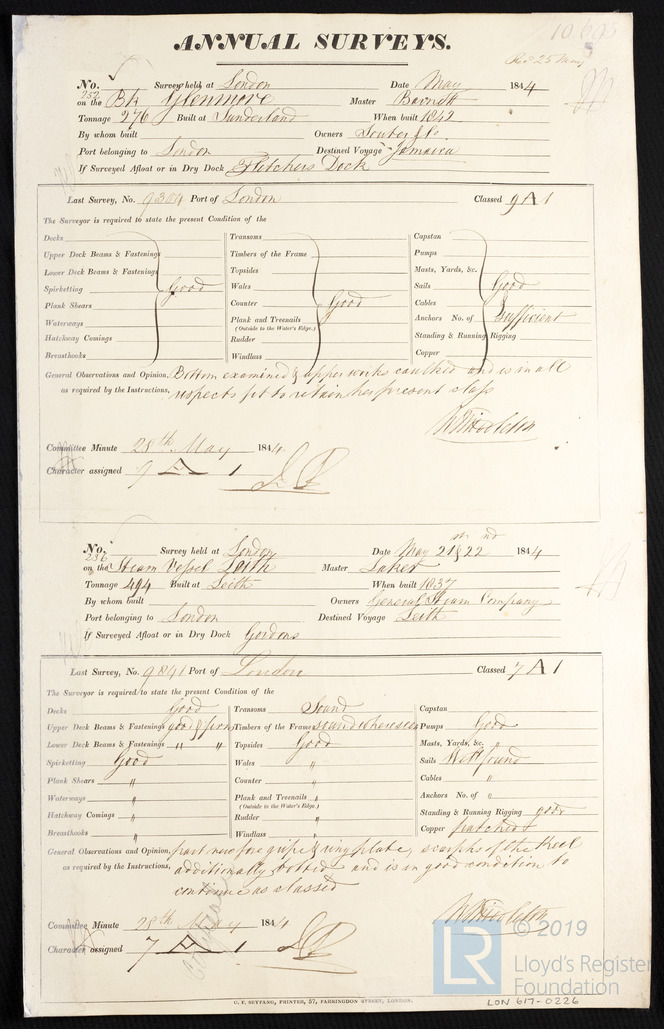 10.605
ANNUAL SURVEYS.
Rd 25 May
No. 252 Survey held at London Date May 1844
on the Bk Glenmore Master Barnett
Tonnage 276 Built at Sunderland When built 1842
By whom built Owners Souter & Co
Port belonging to London Destined Voyage Jamaica
If Surveyed Afloat or in Dry Dock Fletchers Dock
Last Survey, No. 9304 Port of London Classed 9 A 1
The Surveyor is required to state the present Condition of the
Decks Transoms Capstan
Upper Deck Beams & Fastenings Timbers of the Frame Pumps
Lower Deck Beams & Fastenings Topsides Masts, Yards, &c.
Spirketting Good Wales Sails Good
Plank Shears Counter Good Cables &
Waterways Plank and Treenails Anchors No. of Sufficient
(Outside to the Water's Edge.)
Hatchway Comings Rudder Standing & Running Rigging
Breasthooks Windlass Copper
General Observations and Opinion, Bottom examined & upper works caulked and is in all
as required by the Instructions, respects fit to retain her present class
W Middleton
Committee Minute 28th May 1844
Character assigned 9 A 1
No. 256 Survey held at London Date May 21st & 22nd 1844
on the Steam Vessel Leith Master
Tonnage 494 Built at Leith When built 1837
By whom built Owners General Steam Company
Port belonging to London Destined Voyage Leith
If Surveyed Afloat or in Dry Dock Gordons
Last Survey, No. 9841 Port of London Classed 7 A 1
The Surveyor is required to state the present Condition of the
Decks Good Transoms Sound Capstan
Upper Deck Beams & Fastenings good & firm Timbers of the Frame sound where seen Pumps Good
Lower Deck Beams & Fastenings " " Topsides Good Masts, Yards, &c. "
Spirketting Good Wales " Sails Well found
Plank Shears " Counter " Cables "
Waterways " Plank and Treenails " Anchors No. of "
(Outside to the Water's Edge.)
Hatchway Comings " Rudder " Standing & Running Rigging good
Breasthooks " Windlass " Copper patched
General Observations and Opinion, part new fore gripe & ring plate, scarphs of the Keel
as required by the Instructions, additionally bolted and is in good condition to
continue as classed
W Middleton
Committee Minute 28th May 1844
Character assigned 7 A 1
LR © 2019
Lloyd's Register
Foundation
C. F. SEYFANG, PRINTER, 57, FARRINGDON STREET, LONDON.
LON 617-0226